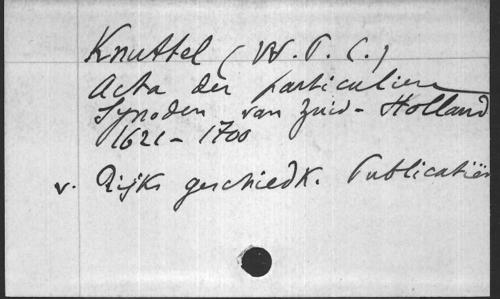 Knuttel (W. P. C.)
Acta der particuliere
Synoden van Zuid-Holland
1621-1700
v. Rijks geschiedk. Publicatiën